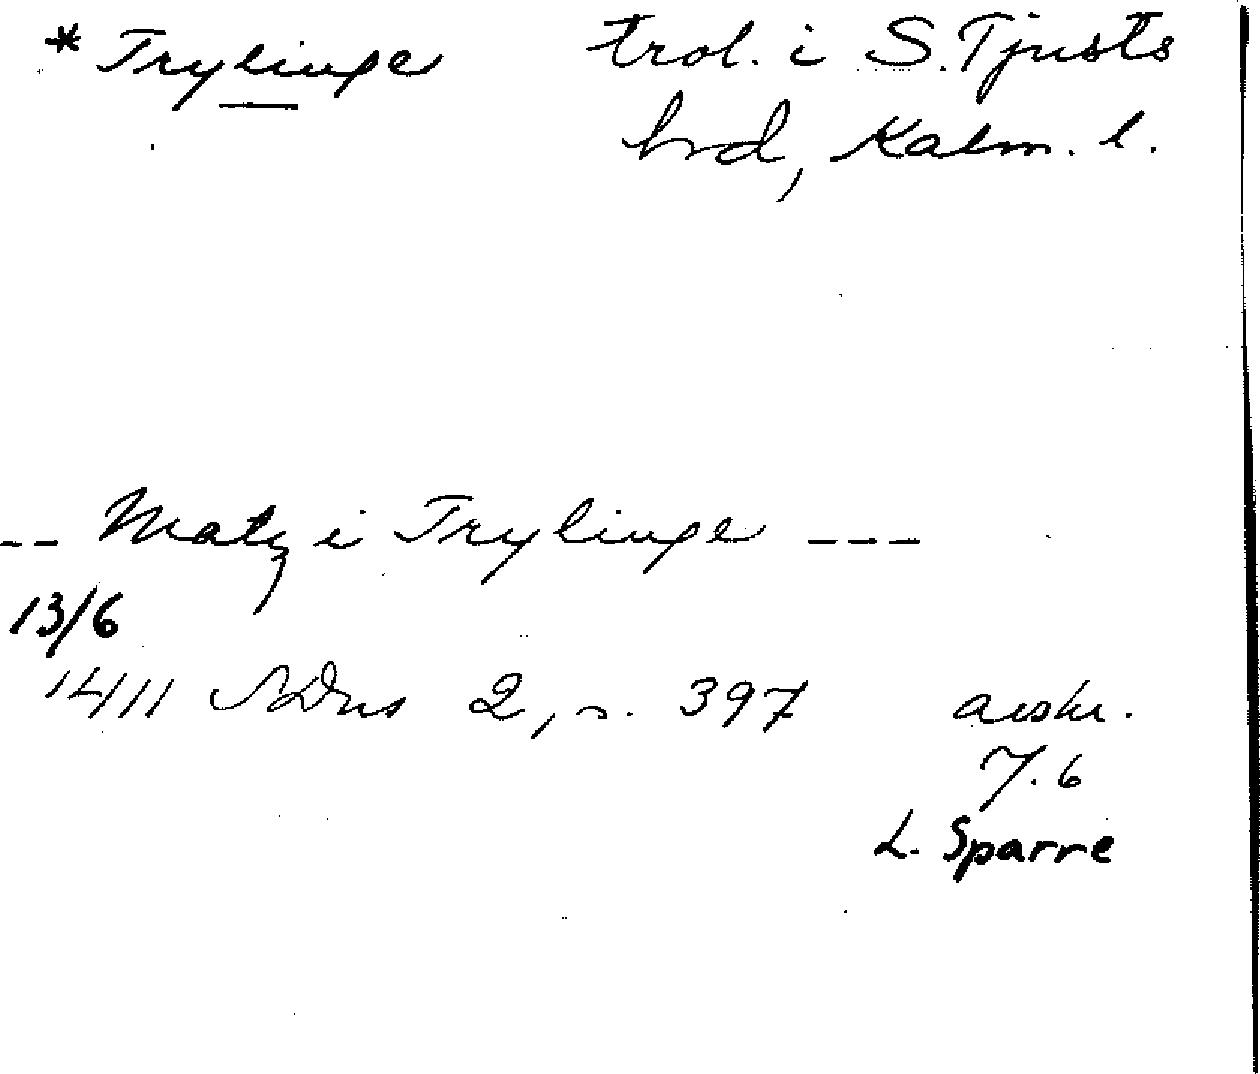 * Trylinge trol. i S. Tjusts
hrd, Kalm. l.
-- Matz i Trylinge ---
13/6
1411 SDns 2, s. 397 avskr.
7.6
L. Sparre